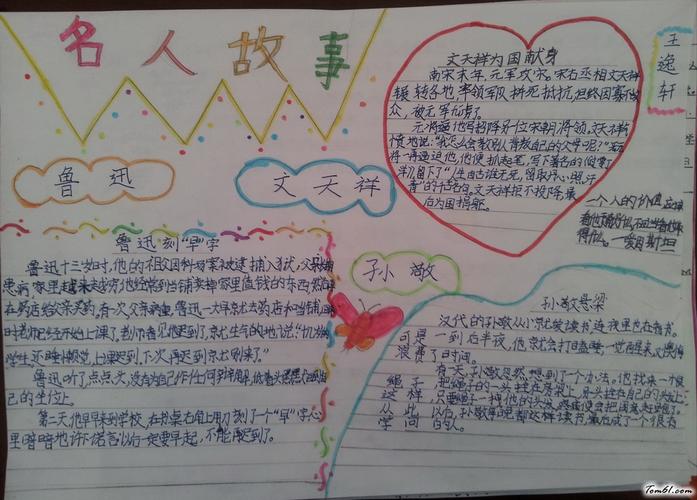 名人故事
鲁迅
文天祥
文天祥为国献身
南宋末年,元军攻宋,宋右丞相文天祥
辗转各地,率领军队拼死抵抗,但终因寡不敌
众,被元军俘虏了。
元将逼他写招降另一位宋朝将领,文天祥愤
愤地说:“我怎么会教别人背叛自己的父母呢?”
将一再逼迫他,他便抓起笔,写下著名的《过零丁
洋》,留下了“人生自古谁无死,留取丹心照汗
青”的千古名句,文天祥拒不投降,最
后为国捐躯。
王逸轩
一个人的价值,应该
爱因斯坦
鲁迅刻“早”字
鲁迅十三岁时,他的祖父因科场案被逮捕入狱,父亲
患病,家里越来越穷,他经常到当铺卖掉家里值钱的东西,然后
在药店给父亲买药,有一次,父亲病重,鲁迅一大早就去药店和当铺,回
时老师已经开始上课了,老师看见他迟到了,就生气的地说:“
学生,还睡懒觉,上课迟到,下次再迟到就别来了。”
鲁迅听了,点点头,没有为自己作任何
己的坐位上。
第二天他早早来到学校,在书桌右角上用刀刻了一个“早”字,心
里暗暗地许下诺言:以后一定要早起,不能再迟到了。
孙敬
孙敬悬梁
汉代的孙敬从小就爱读书,连夜里也在看书。
可是一到后半夜,他就会打瞌睡,一觉醒来,又懊悔
浪费了时间。
有一天,孙敬忽然想到了一个办法。他找来一根
绳子,把绳子的一头拴在房梁上,另一头拴在自己的头发上,
这样,只要绳子一拽他的头发,
从此以后,孙敬每晚都这样读书,最后成了一个很有
学问的人。
Tom61.com